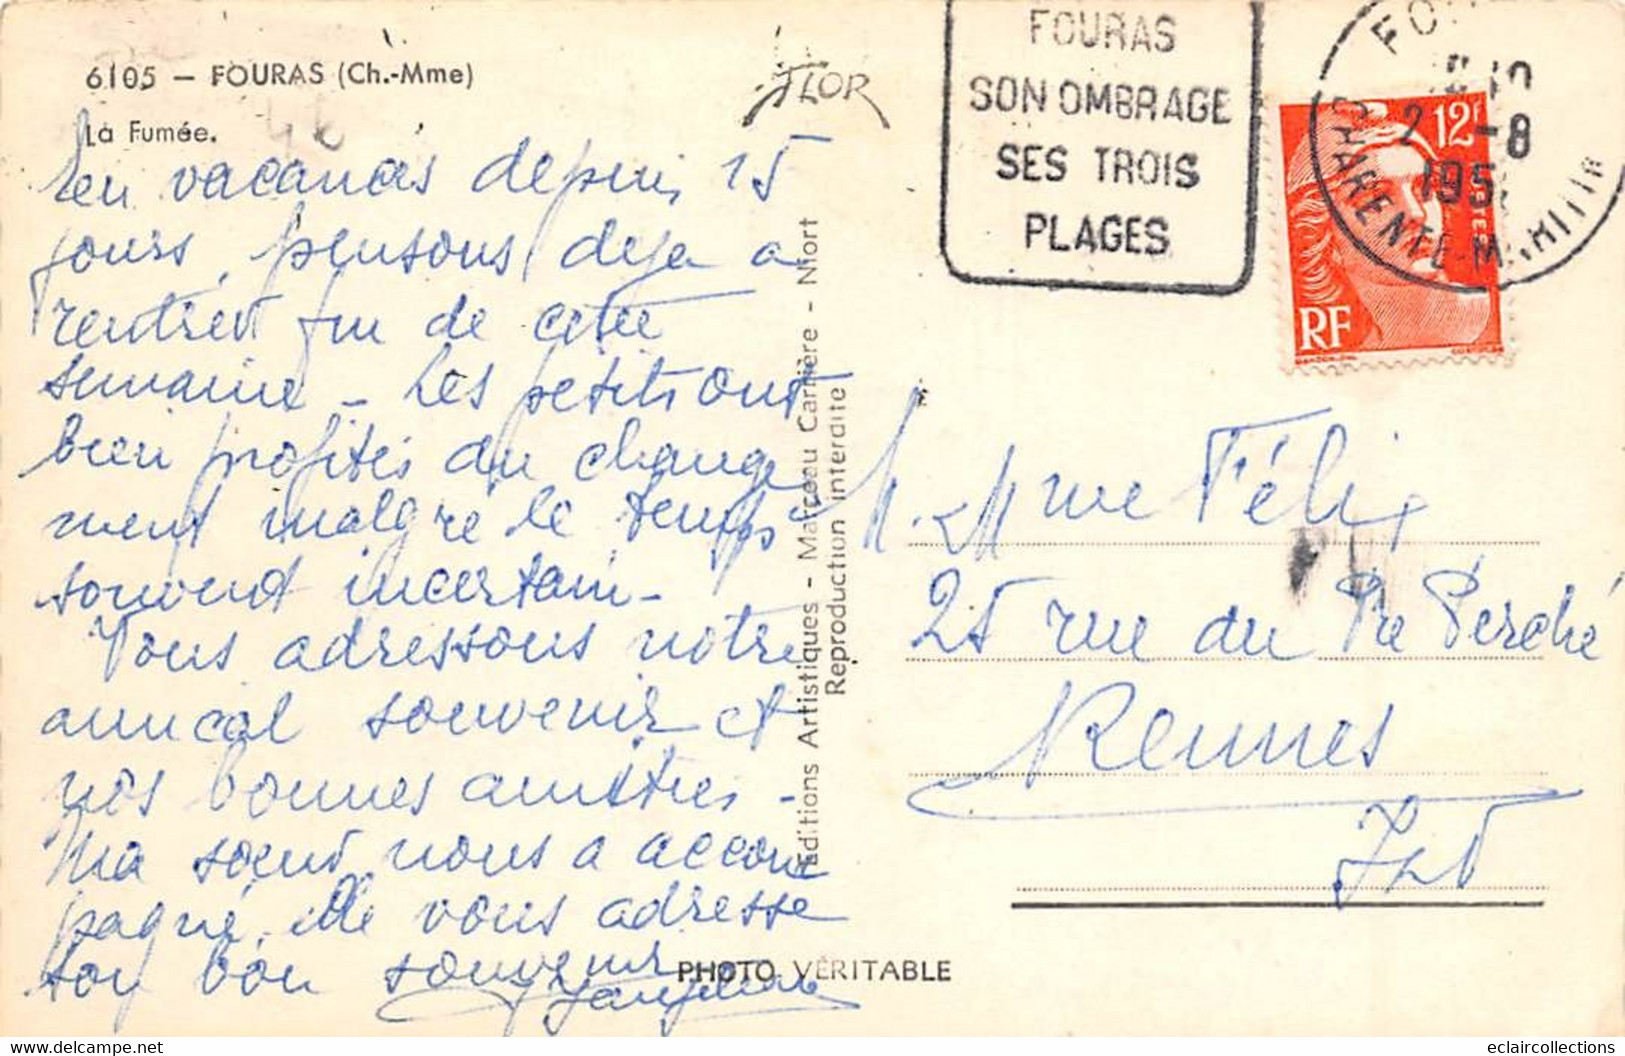 6105 – FOURAS (Ch.-Mme)
La Fumée.
FLOR
En vacances depuis 15
jours, pensons deja a
rentrer fin de cette
semaine – Les petits ont
bien profités du change
ment malgré le temps
souvent incertain –
Vous adressons notre
amical souvenir et
nos bonnes amitiés –
Ma soeur nous a accom
pagné. Elle vous adresse
son bon souvenir
Editions Artistiques - Marceau Carrière - Niort
Reproduction interdite
PHOTO VÉRITABLE
FOURAS
SON OMBRAGE
SES TROIS
PLAGES
CHARENTE-M
2 -8
195
12F
RF
M. Mme Félix
25 rue du Pré Perché
Rennes
I et V
delcampe.net
eclaircollections